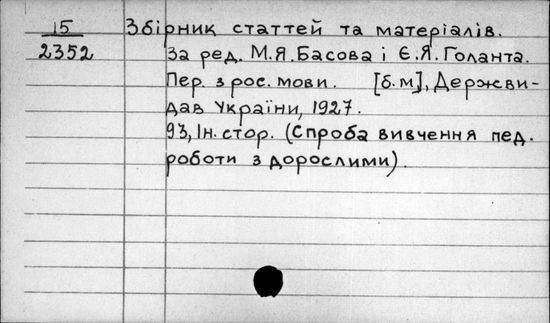 15 Збірник статтей та матеріалів.
2352 За ред. М.Я.Басова і Є.Я.Голанта.
Пер. з рос. мови. [б.м], Держви-
дав України, 1927.
93, Ін. стор. (Спроба вивчення пед.
роботи з дорослими).